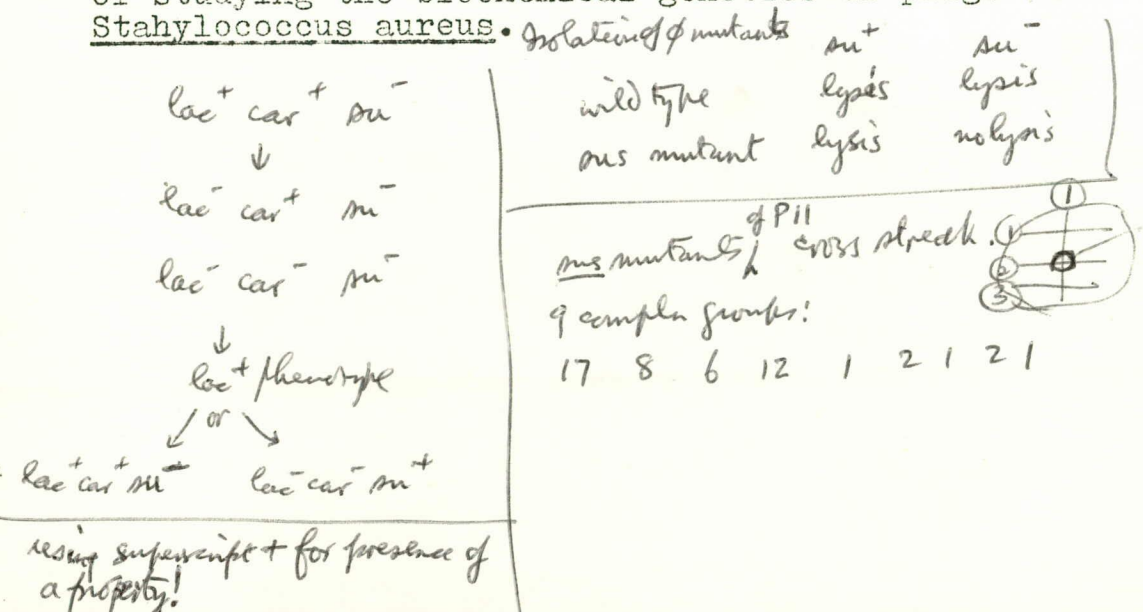 of studying the biochemical genetics
Stahylococcus aureus.
lac⁺ car⁺ su⁻
↓
lac⁻ car⁺ su⁻
lac⁻ car⁻ su⁻
↓
lac⁺ phenotype
or
lac⁺car⁺su⁻ lac⁻car⁻su⁺
using superscript + for presence of
a property!
Isolation of φ mutants su⁺ su⁻
wild type lysis lysis
sus mutant lysis no lysis
sus mutants of P11 cross streak.
1
1
2
3
9 complen groups:
17 8 6 12 1 2 1 2 1